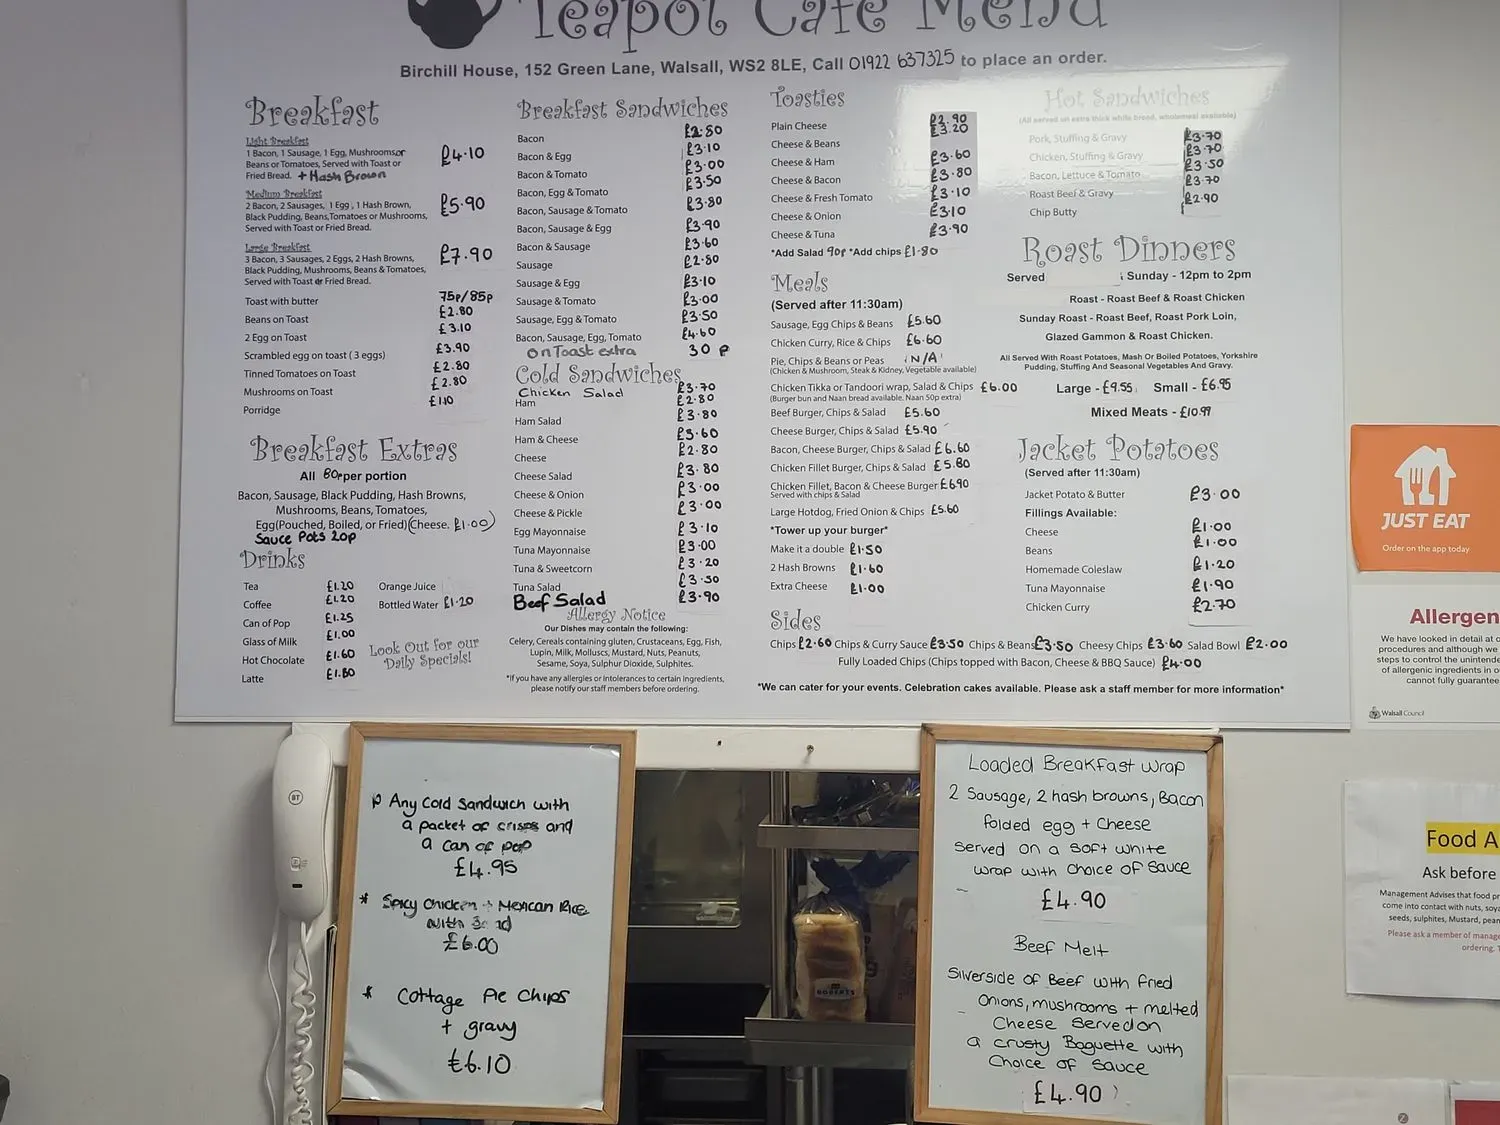 Teapot Cafe Menu
Birchill House, 152 Green Lane, Walsall, WS2 8LE, Call 01922 637325 to place an order.
Breakfast
Light Breakfast
1 Bacon, 1 Sausage, 1 Egg, Mushrooms or
Beans or Tomatoes, Served with Toast or
Fried Bread. + Hash Brown
£4.10
Medium Breakfast
2 Bacon, 2 Sausages, 1 Egg, 1 Hash Brown,
Black Pudding, Beans, Tomatoes or Mushrooms,
Served with Toast or Fried Bread.
£5.90
Large Breakfast
3 Bacon, 3 Sausages, 2 Eggs, 2 Hash Browns,
Black Pudding, Mushrooms, Beans & Tomatoes,
Served with Toast or Fried Bread.
£7.90
Toast with butter 75p/85p
Beans on Toast £2.80
2 Egg on Toast £3.10
Scrambled egg on toast (3 eggs) £3.90
Tinned Tomatoes on Toast £2.80
Mushrooms on Toast £2.80
Porridge £1.10
Breakfast Extras
All 80p per portion
Bacon, Sausage, Black Pudding, Hash Browns,
Mushrooms, Beans, Tomatoes,
Egg(Pouched, Boiled, or Fried)(Cheese. £1.00)
Sauce Pots 20p
Drinks
Tea £1.20
Coffee £1.20
Can of Pop £1.25
Glass of Milk £1.00
Hot Chocolate £1.60
Latte £1.80
Orange Juice
Bottled Water £1.20
Look Out for our
Daily Specials!
Breakfast Sandwiches
Bacon £2.80
Bacon & Egg £3.10
Bacon & Tomato £3.00
Bacon, Egg & Tomato £3.50
Bacon, Sausage & Tomato £3.80
Bacon, Sausage & Egg £3.90
Bacon & Sausage £3.60
Sausage £2.80
Sausage & Egg £3.10
Sausage & Tomato £3.00
Sausage, Egg & Tomato £3.50
Bacon, Sausage, Egg, Tomato £4.60
On Toast extra 30p
Cold Sandwiches
Chicken Salad £3.70
Ham £2.80
Ham Salad £3.80
Ham & Cheese £3.60
Cheese £2.80
Cheese Salad £3.80
Cheese & Onion £3.00
Cheese & Pickle £3.00
Egg Mayonnaise £3.10
Tuna Mayonnaise £3.00
Tuna & Sweetcorn £3.20
Tuna Salad £3.50
Beef Salad £3.90
Allergy Notice
Our Dishes may contain the following:
Celery, Cereals containing gluten, Crustaceans, Egg, Fish,
Lupin, Milk, Molluscs, Mustard, Nuts, Peanuts,
Sesame, Soya, Sulphur Dioxide, Sulphites.
*If you have any allergies or intolerances to certain ingredients,
please notify our staff members before ordering.
Toasties
Plain Cheese £2.90
Cheese & Beans £3.20
Cheese & Ham £3.60
Cheese & Bacon £3.80
Cheese & Fresh Tomato £3.10
Cheese & Onion £3.10
Cheese & Tuna £3.90
*Add Salad 90p *Add chips £1.80
Meals
(Served after 11:30am)
Sausage, Egg Chips & Beans £5.60
Chicken Curry, Rice & Chips £6.60
Pie, Chips & Beans or Peas N/A
(Chicken & Mushroom, Steak & Kidney, Vegetable available)
Chicken Tikka or Tandoori wrap, Salad & Chips £6.00
(Burger bun and Naan bread available. Naan 50p extra)
Beef Burger, Chips & Salad £5.60
Cheese Burger, Chips & Salad £5.90
Bacon, Cheese Burger, Chips & Salad £6.60
Chicken Fillet Burger, Chips & Salad £5.80
Chicken Fillet, Bacon & Cheese Burger £6.90
Served with chips & Salad
Large Hotdog, Fried Onion & Chips £5.60
*Tower up your burger*
Make it a double £1.50
2 Hash Browns £1.60
Extra Cheese £1.00
Sides
Chips £2.60 Chips & Curry Sauce £3.50 Chips & Beans £3.50 Cheesy Chips £3.60 Salad Bowl £2.00
Fully Loaded Chips (Chips topped with Bacon, Cheese & BBQ Sauce) £4.00
*We can cater for your events. Celebration cakes available. Please ask a staff member for more information*
Hot Sandwiches
(All served on extra thick white bread, wholemeal available)
Pork, Stuffing & Gravy £3.70
Chicken, Stuffing & Gravy £3.70
Bacon, Lettuce & Tomato £3.50
Roast Beef & Gravy £3.70
Chip Butty £2.90
Roast Dinners
Served Sunday - 12pm to 2pm
Roast - Roast Beef & Roast Chicken
Sunday Roast - Roast Beef, Roast Pork Loin,
Glazed Gammon & Roast Chicken.
All Served With Roast Potatoes, Mash Or Boiled Potatoes, Yorkshire
Pudding, Stuffing And Seasonal Vegetables And Gravy.
Large - £9.55 Small - £6.95
Mixed Meats - £10.99
Jacket Potatoes
(Served after 11:30am)
Jacket Potato & Butter £3.00
Fillings Available:
Cheese £1.00
Beans £1.00
Homemade Coleslaw £1.20
Tuna Mayonnaise £1.90
Chicken Curry £2.70
JUST EAT
Order on the app today
Allergen
We have looked in detail at
procedures and although we
steps to control the unintende
of allergenic ingredients in
cannot fully guarantee
Walsall Council
Food A
Ask before
Management Advises that food pr
come into contact with nuts, soya
seeds, sulphites, Mustard, pean
Please ask a member of manage
ordering.
BT
Any Cold Sandwich with
a packet of crisps and
a can of pop
£4.95
* Spicy Chicken + Mexican Rice
with
£6.00
* Cottage Pie Chips
+ gravy
£6.10
ROBERTS
Loaded Breakfast Wrap
2 Sausage, 2 hash browns, Bacon
folded egg + Cheese
Served on a soft white
wrap with choice of sauce
£4.90
Beef Melt
Silverside of Beef with fried
Onions, mushrooms + melted
Cheese Served on
a crusty Baguette with
Choice of Sauce
£4.90